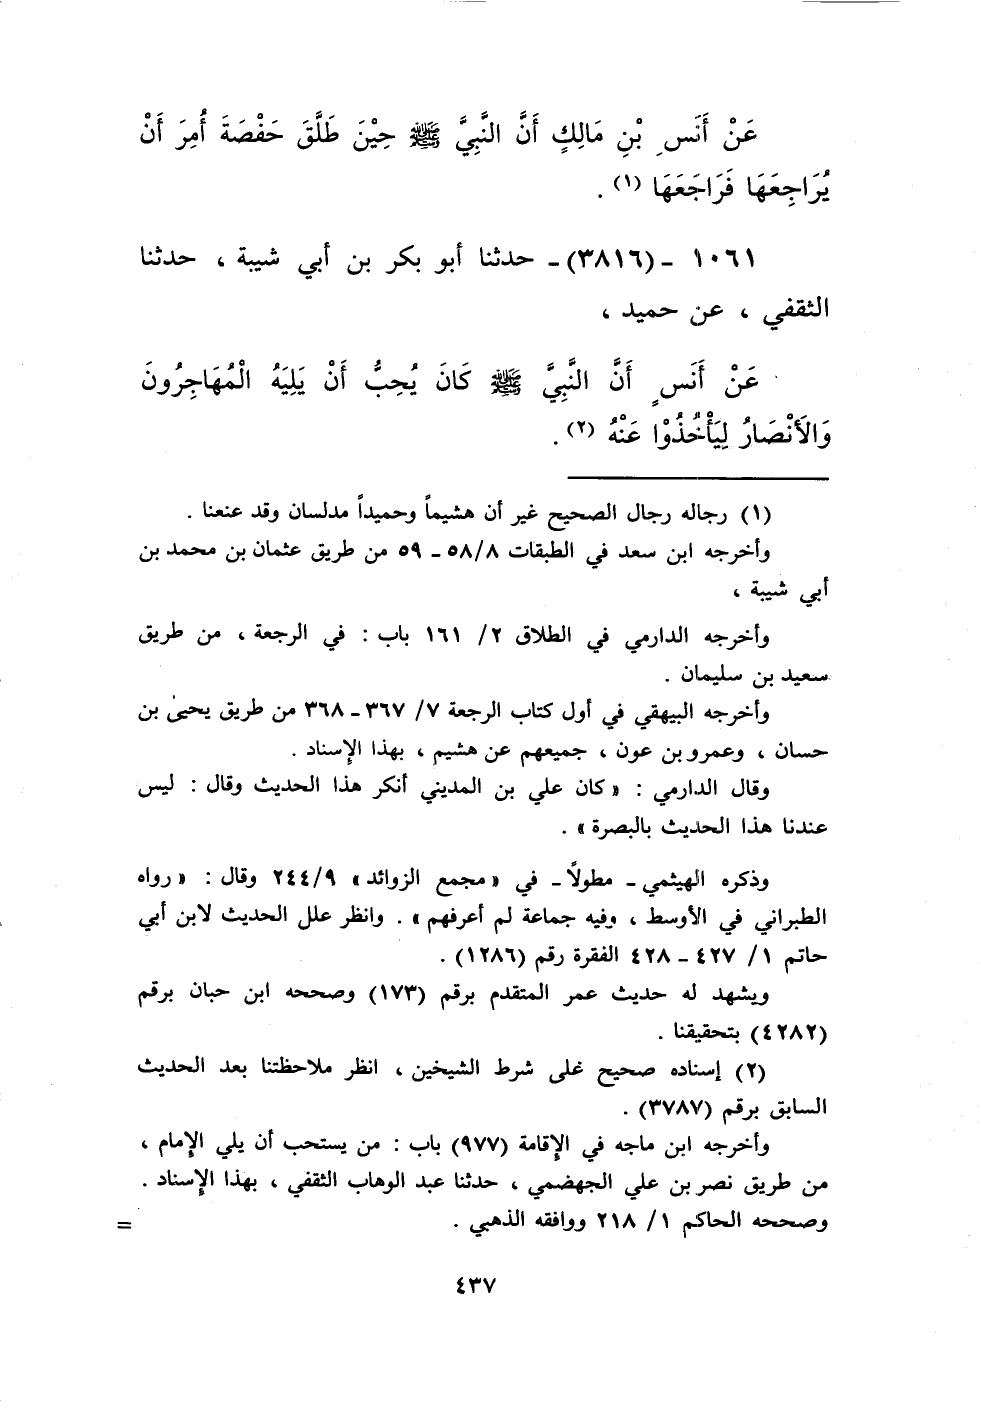 عَنْ أَنَسِ بْنِ مَالِكٍ أَنَّ النَّبِيَّ ﷺ حِيْنَ طَلَّقَ حَفْصَةَ أُمِرَ أَنْ
يُرَاجِعَهَا فَرَاجَعَهَا (١) .
١٠٦١ - (٣٨١٦) - حدثنا أبو بكر بن أبي شيبة ، حدثنا
الثقفي ، عن حميد ،
عَنْ أَنَسٍ أَنَّ النَّبِيَّ ﷺ كَانَ يُحِبُّ أَنْ يَلِيَهُ الْمُهَاجِرُونَ
وَالأَنْصَارُ لِيَأْخُذُوْا عَنْهُ (٢) .
(١) رجاله رجال الصحيح غير أن هشيماً وحميداً مدلسان وقد عنعنا .
وأخرجه ابن سعد في الطبقات ٥٨/٨ - ٥٩ من طريق عثمان بن محمد بن
أبي شيبة ،
وأخرجه الدارمي في الطلاق ٢/ ١٦١ باب : في الرجعة ، من طريق
سعيد بن سليمان .
وأخرجه البيهقي في أول كتاب الرجعة ٧/ ٣٦٧ - ٣٦٨ من طريق يحيىٰ بن
حسان ، وعمرو بن عون ، جميعهم عن هشيم ، بهذا الإسناد .
وقال الدارمي : « كان علي بن المديني أنكر هذا الحديث وقال : ليس
عندنا هذا الحديث بالبصرة » .
وذكره الهيثمي - مطولًا - في « مجمع الزوائد » ٢٤٤/٩ وقال : « رواه
الطبراني في الأوسط ، وفيه جماعة لم أعرفهم » . وانظر علل الحديث لابن أبي
حاتم ١/ ٤٢٧ - ٤٢٨ الفقرة رقم (١٢٨٦) .
ويشهد له حديث عمر المتقدم برقم (١٧٣) وصححه ابن حبان برقم
(٤٢٨٢) بتحقيقنا .
(٢) إسناده صحيح غلى شرط الشيخين ، انظر ملاحظتنا بعد الحديث
السابق برقم (٣٧٨٧) .
وأخرجه ابن ماجه في الإقامة (٩٧٧) باب : من يستحب أن يلي الإمام ،
من طريق نصر بن علي الجهضمي ، حدثنا عبد الوهاب الثقفي ، بهذا الإسناد .
وصححه الحاكم ١/ ٢١٨ ووافقه الذهبي . =
٤٣٧